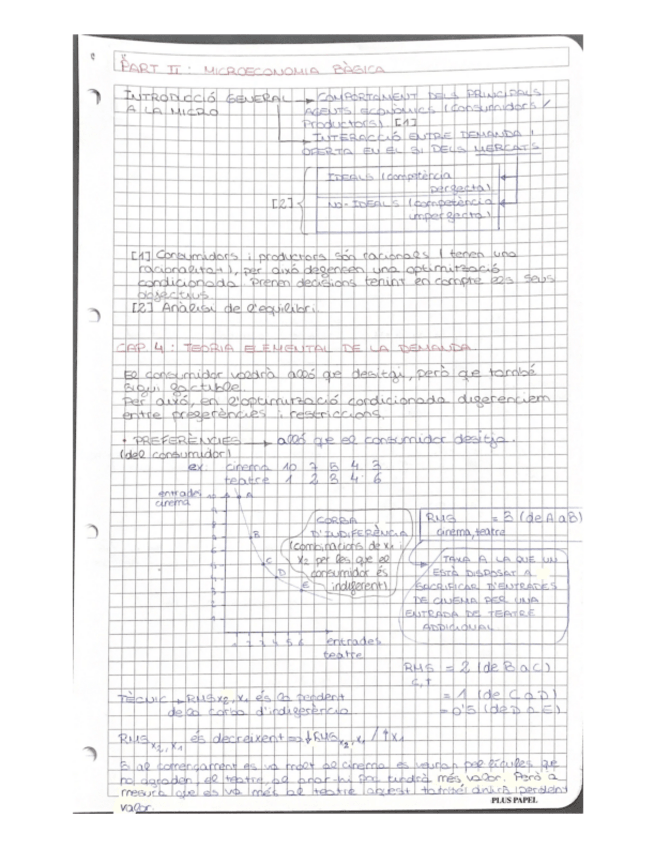 PART II: MICROECONOMIA BÀSICA
INTRODUCCIÓ GENERAL → COMPORTAMENT DELS PRINCIPALS
A LA MICRO
AGENTS ECONÒMICS (consumidors /
productors) [1]
→ INTERACCIÓ ENTRE DEMANDA I
OFERTA EN EL SI DELS MERCATS
[2]
IDEALS (competència
perfecta)
NO-IDEALS (competència
imperfecta)
[1] Consumidors i productors són racionals (tenen una
racionalitat), per això defensen una optimització
condicionada. Prenen decisions tenint en compte els seus
objectius
[2] Anàlisi de l'equilibri
CAP 4: TEORIA ELEMENTAL DE LA DEMANDA
El consumidor voldrà allò que desitgi, però que també
sigui factible
Per això, en l'optimització condicionada diferenciem
entre preferències i restriccions.
• PREFERÈNCIES → allò que el consumidor desitja.
(del consumidor)
ex cinema 10 7 5 4 3
teatre 1 2 3 4 6
entrades
cinema
A
B
C
D
E
1 2 3 4 5 6
entrades
teatre
CORBA
D'INDIFERÈNCIA
(combinacions de x1 i
x2 per les que el
consumidor és
indiferent)
RMS = 3 (de A a B)
cinema, teatre
TAXA A LA QUE UN
ESTÀ DISPOSAT A
SACRIFICAR D'ENTRADES
DE CINEMA PER UNA
ENTRADA DE TEATRE
ADDICIONAL
RMS = 2 (de B a C)
C,T
= 1 (de C a D)
= 0'5 (de D a E)
TÈCNIC → RMS x2, x1 és la pendent
de la corba d'indiferència
RMS x2, x1 és decreixent => ↓RMS x2, x1 / ↑x1
Si al començament es va molt al cinema es veuran pel·lícules que
no agraden, el teatre, al anar-hi poc tindrà més valor. Però a
mesura que es va més al teatre aquest també anirà perdent
valor.
PLUS PAPEL